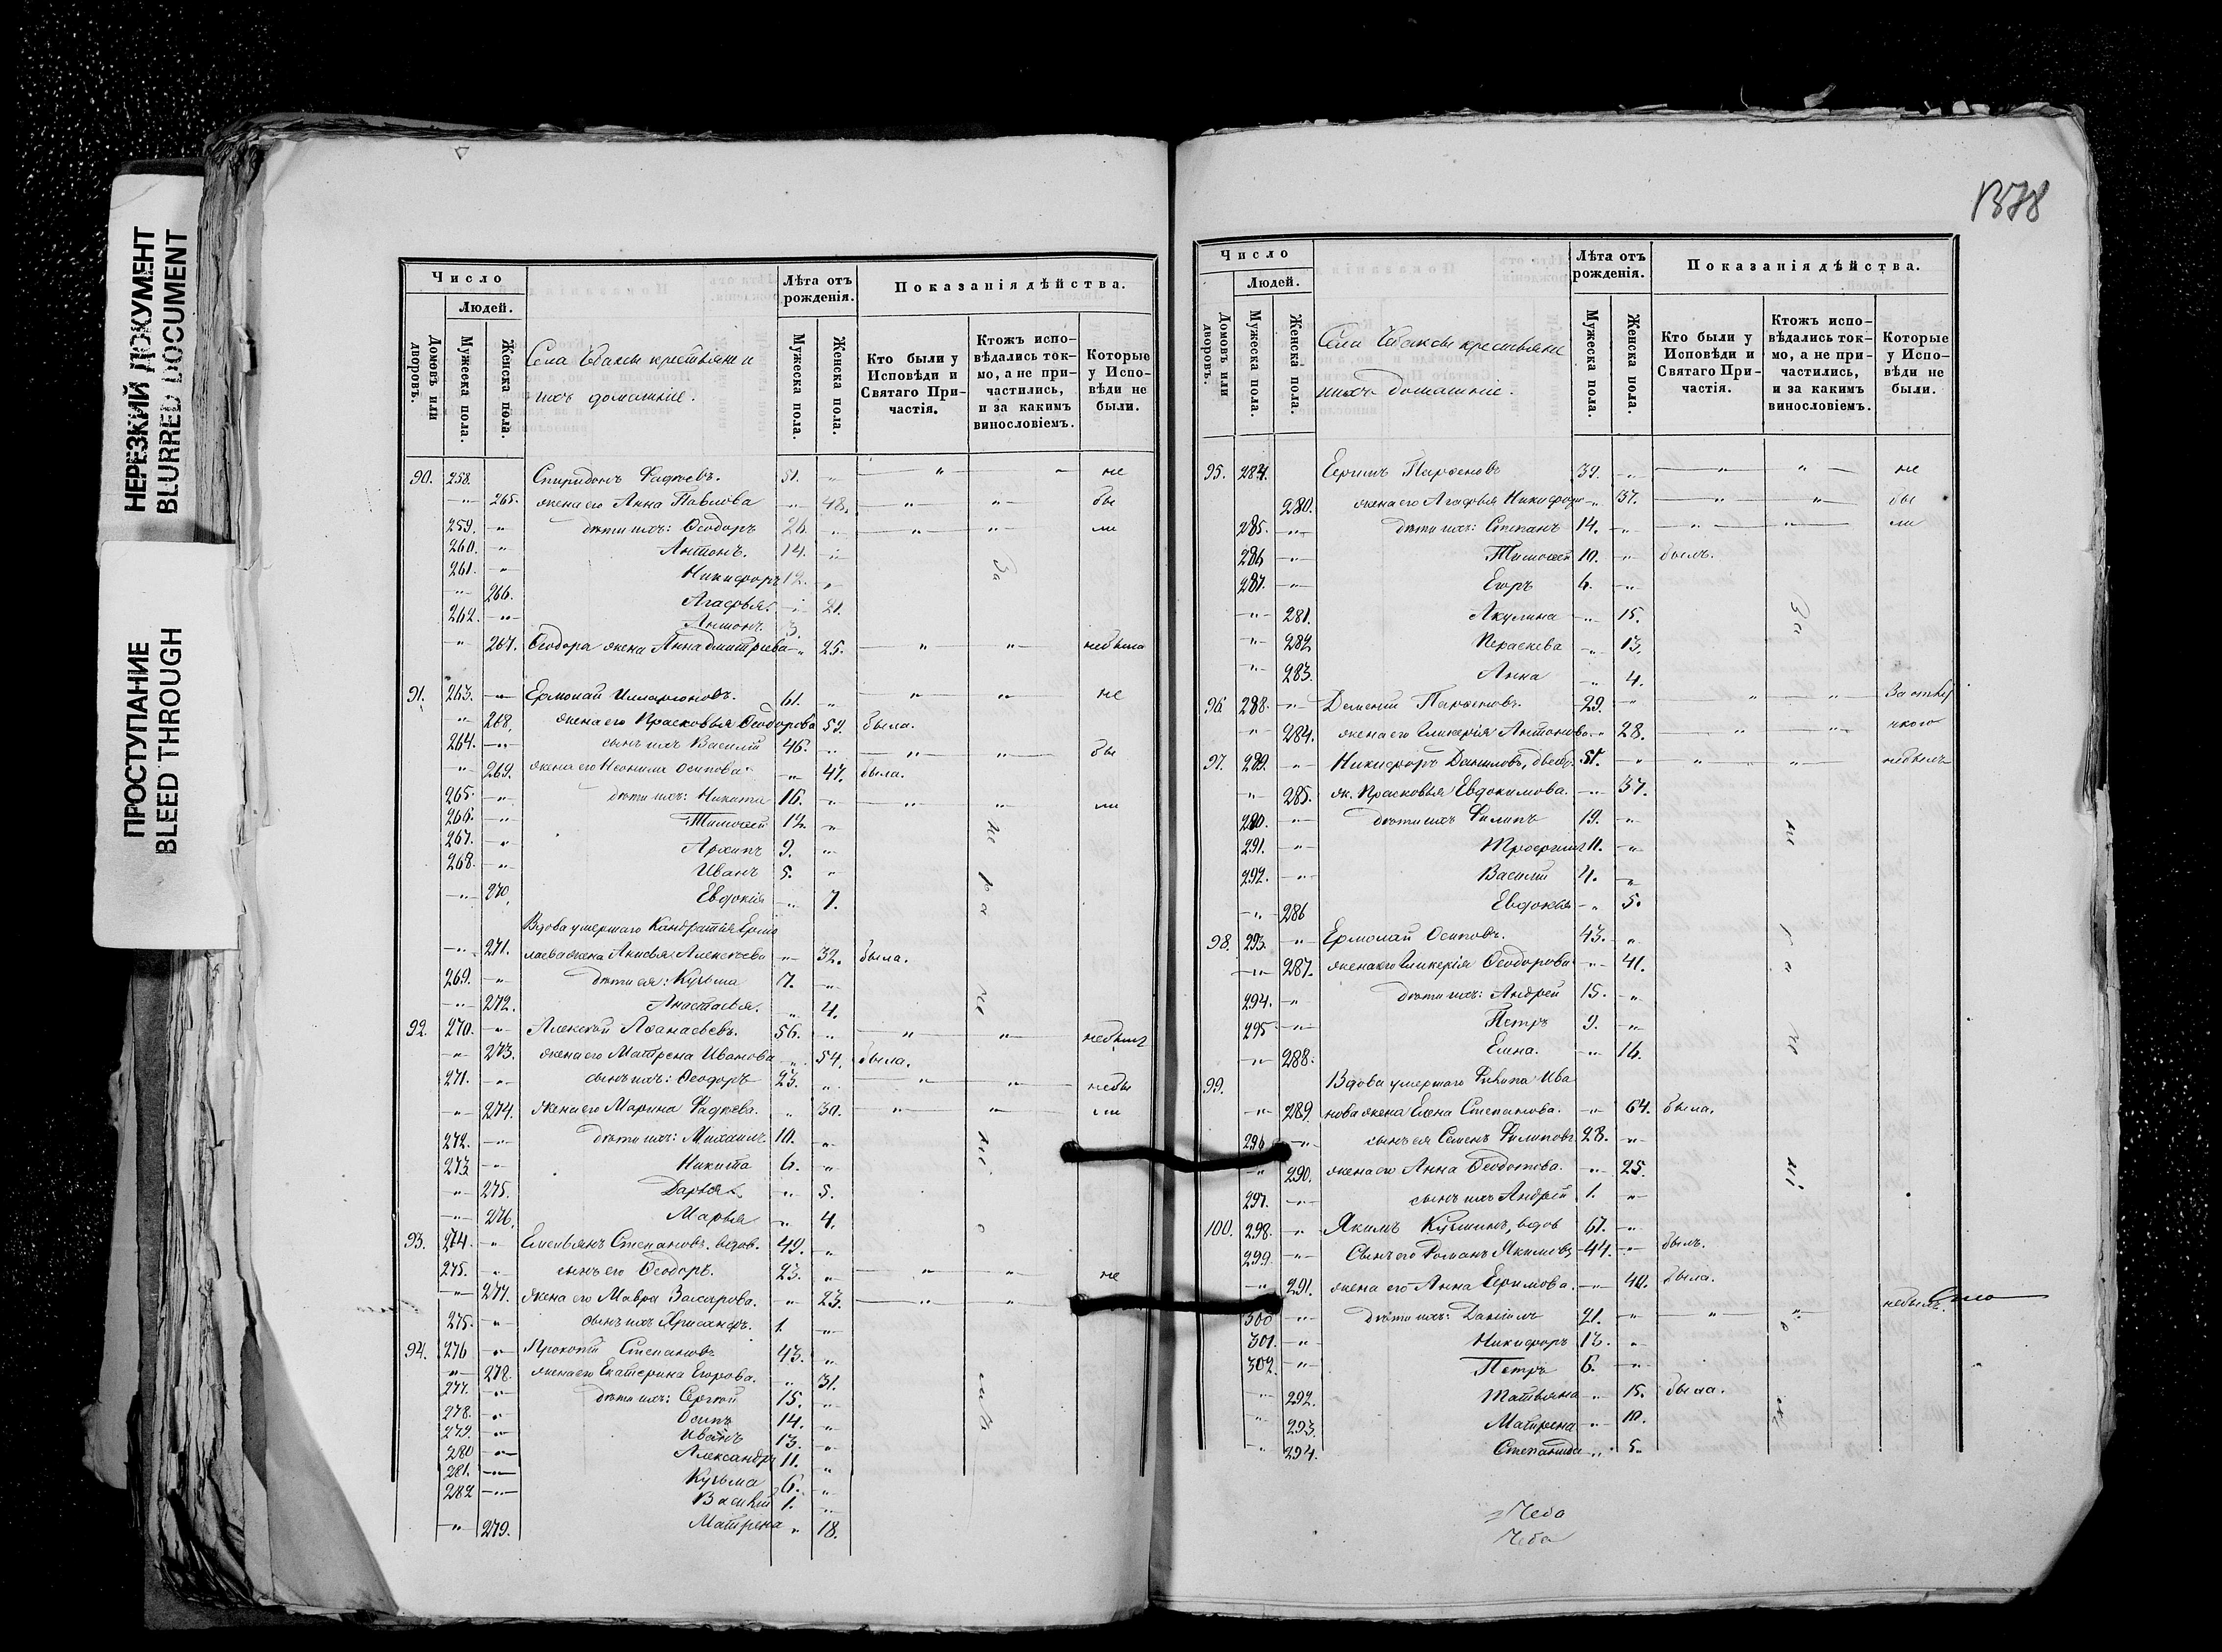 НЕРЕЗКИЙ ДОКУМЕНТ
BLURRED DOCUMENT
ПРОСТУПАНИЕ
BLEED THROUGH
Число
Людей.
Домовъ или дворовъ.
Мужеска пола.
Женска пола.
Лѣта отъ рожденія.
Мужеска пола.
Женска пола.
Показанія дѣйства.
Кто были у Исповѣди и Святаго Причастія.
Ктожъ исповѣдались токмо, а не причастились, и за какимъ винословіемъ.
Которые у Исповѣди не были.
Села крестьяне и
ихъ домашніе.
90. 258. Спиридонъ Фадѣевъ. 51. не
265. жена его Анна Павлова 48. бы
259. дѣти ихъ: Ѳеодоръ 26. ли
260. Антонъ. 14.
261. Никифоръ 12. За
266. Агафья. 21.
262. Антонъ. 3.
267. Ѳеодора жена Анна Дмитріева 25. небыла
91. 263. Ермолай Илларіоновъ. 61. не
268. жена его Прасковья Ѳеодорова 59. была.
264. сынъ ихъ Василій 46. бы
269. жена его Неонила Осипова 47. была.
265. дѣти ихъ: Никита 16. ли
266. Тимоѳей 12.
267. Архипъ 9.
268. Иванъ 5.
270. Евдокія 7.
Вдова умершаго Кандратья Ермо
271. лаева жена Анисья Алексѣева 32. была.
269. дѣти ея: Кузьма 7.
272. Анастасья. 4.
92. 270. Алексѣй Аѳанасьевъ. 56. небылъ
273. жена его Матрена Иванова 54. была.
271. сынъ ихъ: Ѳеодоръ 23. небы
274. жена его Марина Фадѣева. 30. ли
272. дѣти ихъ: Михаилъ 10.
273 Никита 6.
275. Дарья. 5.
276. Марья 4.
93. 274. Емельянъ Степановъ. вдов. 49.
275. сынъ его Ѳеодоръ. 23. не
277. жена его Мавра Захарова. 23.
275. сынъ ихъ 1.
94. 276 Прокопій Степановъ 43.
278. жена его Екатерина Егорова. 31.
277. дѣти ихъ: Сергѣй 15.
278. Осипъ 14.
279. Иванъ 13.
280 Александръ 11.
281. Кузьма 6.
282 Василій 1.
279. Матрена 18.
1378
Число
Людей.
Домовъ или дворовъ.
Мужеска пола.
Женска пола.
Лѣта отъ рожденія.
Мужеска пола.
Женска пола.
Показанія дѣйства.
Кто были у Исповѣди и Святаго Причастія.
Ктожъ исповѣдались токмо, а не причастились, и за какимъ винословіемъ.
Которые у Исповѣди не были.
Села крестьяне
ихъ домашніе.
95. 284. Ефимъ Парѳеновъ 39. не
280. жена его Агафья Никифоро 37. бы
285. дѣти ихъ: Степанъ 14. ли
286 Тимоѳей 10. былъ.
287. Егоръ 6.
281. Акулина 15. За
282 Параскева 13.
283. Анна 4.
96 288. Дементій Парѳеновъ. 29. За отлу
284. жена его Гликерія Антонова 28. чкою
97. 289. Никифоръ Даниловъ, 51. небылъ
285. ж. Прасковья Евдокимова. 37.
290. дѣти ихъ Филипъ 19.
291. Трофимъ 11.
292. Василій 4.
286 Евдокія 5.
98. 293. Ермолай Осиповъ. 43.
287. жена его Гликерія Ѳеодорова 41.
294. дѣти ихъ: Андрей 15.
295 Петръ 9.
288. Елена. 16.
99. Вдова умершаго Филипа Ива
289. нова жена Елена Степанова. 64. была.
296 сынъ ея Семенъ Филиповъ 28.
290. жена его Анна Ѳеодотова. 25.
297. сынъ ихъ Андрей 1.
100. 298. Якимъ Кузминъ, вдов 67.
299 Сынъ его Романъ Якимовъ 44. былъ.
291. жена его Анна Ефимова. 40. была.
300 дѣти ихъ: Даніилъ 21. небылъ.
301. Никифоръ 13.
302. Петръ 6.
292. Татьяна 15. была.
293. Матрена 10.
294. Степанида 5.